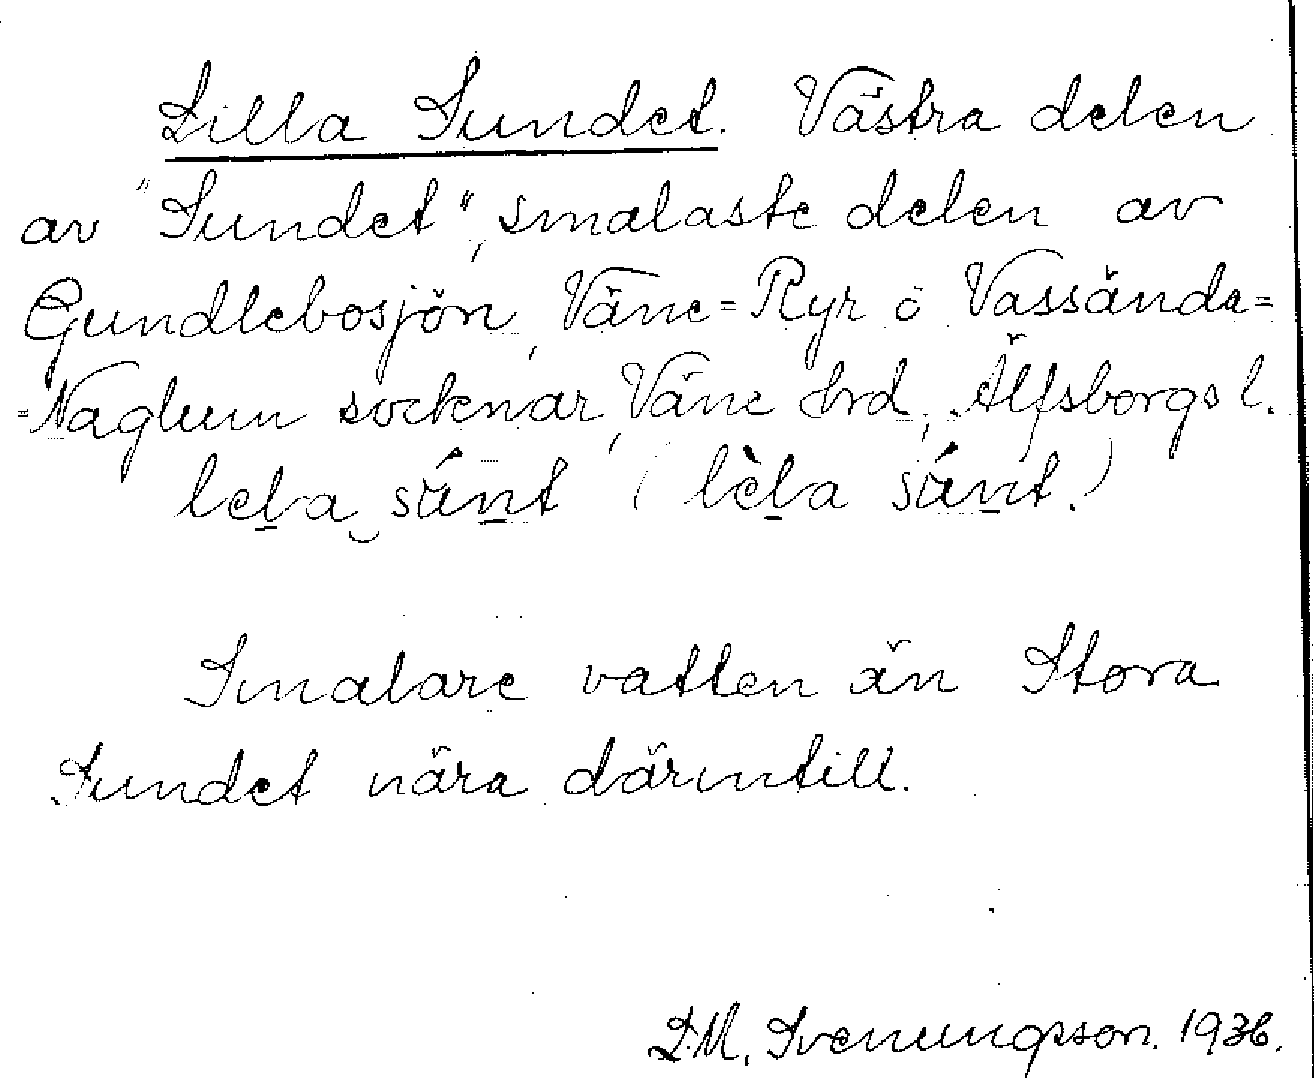 Lilla Sundet. Västra delen
av "Sundet", smalaste delen av
Gundlebosjön, Väne=Ryr o Vassända=
=Naglum socknar, Väne hrd, Älfsborgs l.
Smalare vatten än Stora
Sundet nära därintill.
L.M. Svenungsson. 1936.